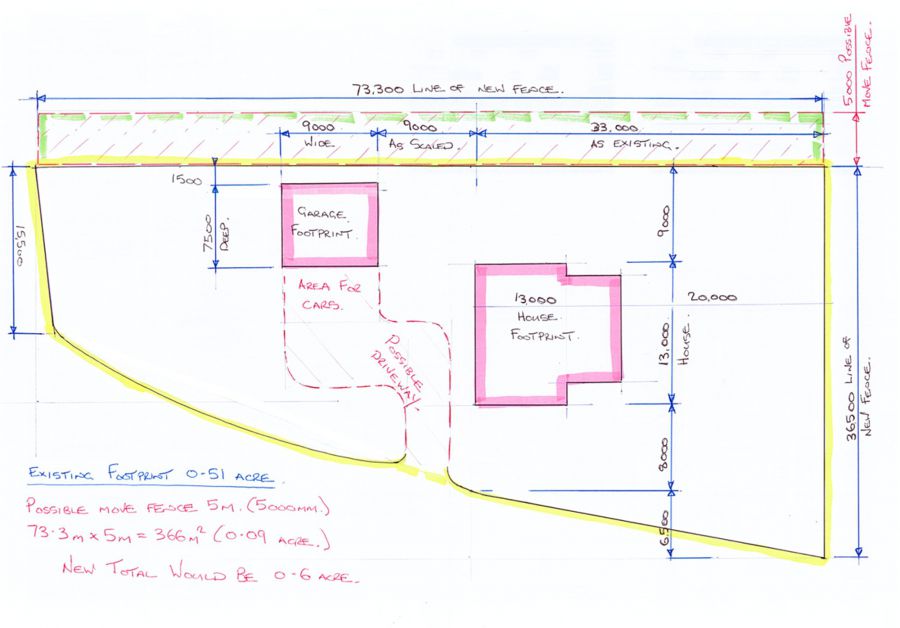 73,300 LINE OF NEW FENCE.
5000 POSSIBLE
MOVE FENCE.
9000
WIDE.
9000
AS SCALED.
33,000
AS EXISTING.
1500
7500
DEEP.
GARAGE
FOOTPRINT.
15,500
9000
AREA FOR
CARS.
13,000
HOUSE
FOOTPRINT.
20,000
13,000
HOUSE
POSSIBLE
DRIVEWAY.
36500 LINE OF
NEW FENCE.
8000
6,500
EXISTING FOOTPRINT 0.51 ACRE.
POSSIBLE MOVE FENCE 5M. (5000MM.)
73.3M x 5M = 366M² (0.09 ACRE.)
NEW TOTAL WOULD BE 0.6 ACRE.